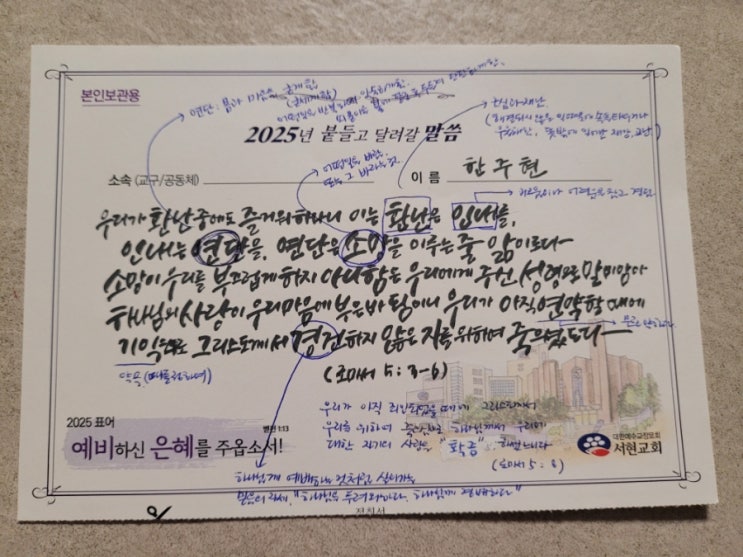 본인보관용
연단: 몸과 마음을 굳게함
2025년 붙들고 달려갈 말씀
소속 (교구/공동체)
이 름 한 주 현
우리가 환난 중에도 즐거워하나니 이는 환난은 인내를,
인내는 연단을, 연단은 소망을 이루는 줄 앎이로다
소망이 우리를 부끄럽게 하지 아니함은 우리에게 주신 성령으로 말미암아
하나님의 사랑이 우리 마음에 부은바 됨이니 우리가 아직 연약할 때에
기약대로 그리스도께서 경건하지 않은 자를 위하여 죽으셨도다
(로마서 5:3-6)
우리가 아직 죄인 되었을 때에 그리스도께서
우리를 위하여 죽으심으로 하나님께서 우리에
대한 자기의 사랑을 "확증" 하셨느니라
(로마서 5:8)
2025 표어
예비하신 은혜를 주옵소서!
대한예수교장로회
서현교회
하나님께 예배하는 것처럼 살아가는